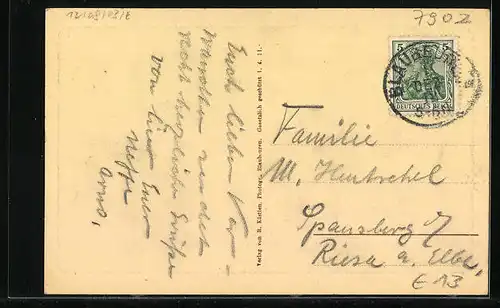 12108/03/E
7902
Euch lieben Ver-
wandten sendet
recht herzliche Grüße
von hier Euer
Neffe
Arno,
Verlag von R. Kießen, Photogr., Blaubeuren. Gesetzlich geschützt 1. 4. 11.
5 5
BLAUBEUREN
DEUTSCHES REICH
Familie
M. Hentschel
Spansberg
Riesa a. Elbe,
E 13